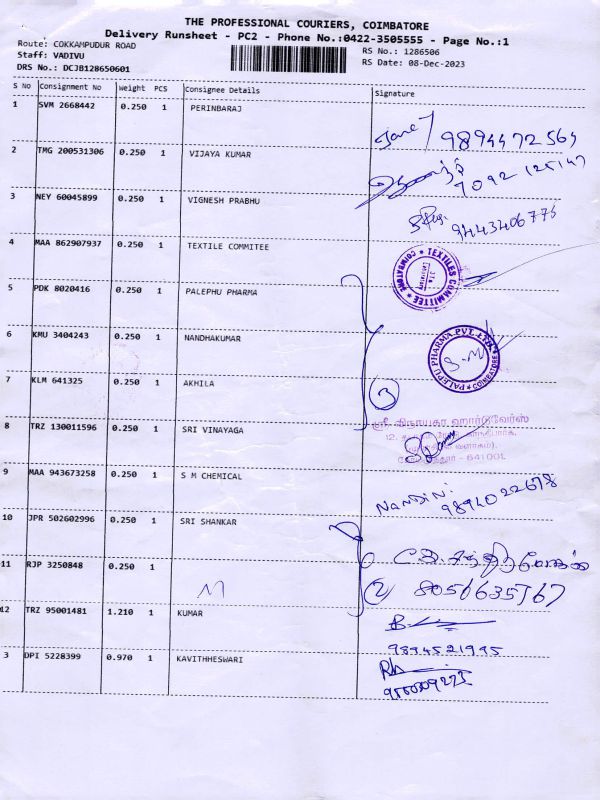 THE PROFESSIONAL COURIERS, COIMBATORE
Delivery Runsheet - PC2 - Phone No.:0422-3505555 - Page No.:1
Route: COKKAMPUDUR ROAD
RS No.: 1286506
Staff: VADIVU
RS Date: 08-Dec-2023
DRS No.: DCJB128650601
S No Consignment No Weight PCS Consignee Details Signature
1 SVM 2668442 0.250 1 PERINBARAJ
9894472564
2 TMG 200531306 0.250 1 VIJAYA KUMAR
7092125147
3 NEY 60045899 0.250 1 VIGNESH PRABHU
9443406775
4 MAA 862907937 0.250 1 TEXTILE COMMITEE
TEXTILES COMMITTEE COIMBATORE
5 PDK 8020416 0.250 1 PALEPHU PHARMA
PALEPU PHARMA PVT. LTD. COIMBATORE
6 KMU 3404243 0.250 1 NANDHAKUMAR
7 KLM 641325 0.250 1 AKHILA
3
8 TRZ 130011596 0.250 1 SRI VINAYAGA
ஸ்ரீ விநாயகா ஹார்டுவேர்ஸ்
- 641001.
9 MAA 943673258 0.250 1 S M CHEMICAL
Nandini
9894022678
10 JPR 502602996 0.250 1 SRI SHANKAR
11 RJP 3250848 0.250 1
2
8056635767
12 TRZ 95001481 1.210 1 KUMAR
9894521995
3 DPI 5228399 0.970 1 KAVITHHESWARI